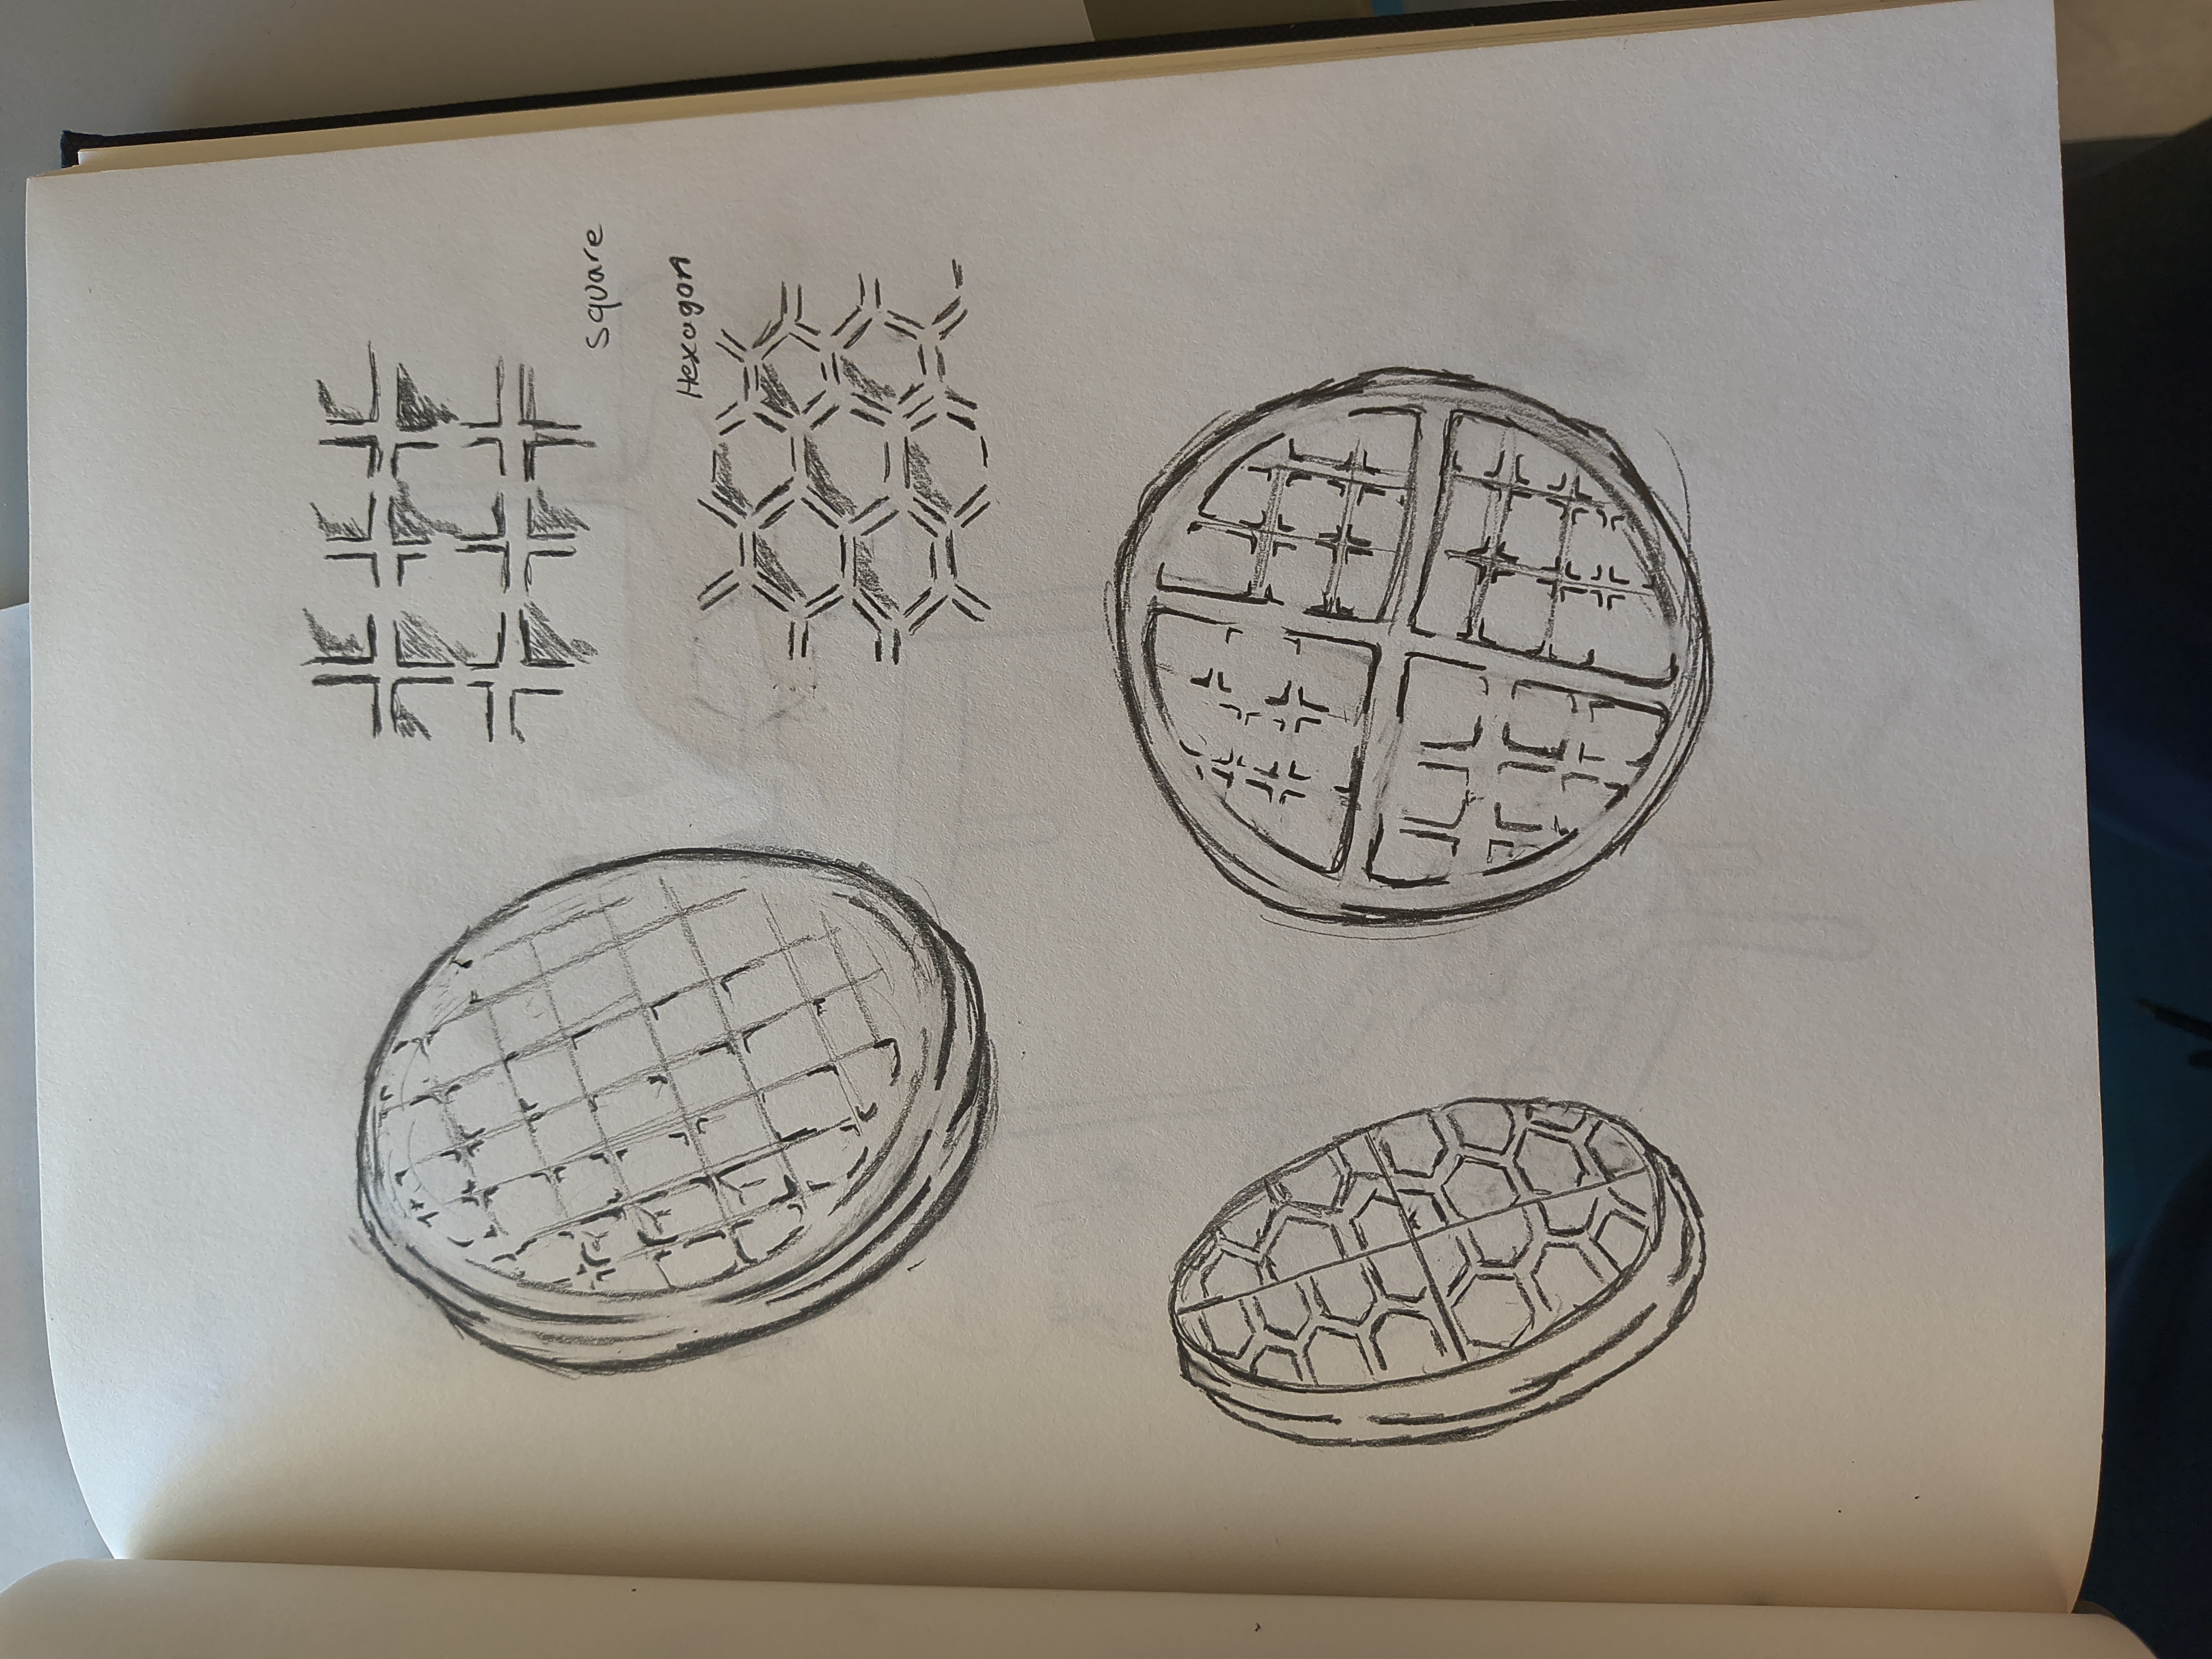 square
Hexagon